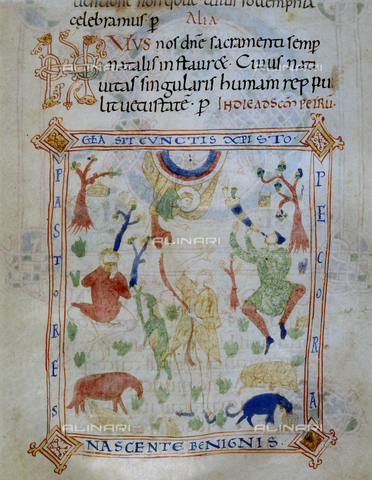 celebramus p Alia
uius nos dne sacramenti semp
natalis instauret. Cuius nati
uitas singularis humanā reppu
lit uetustatē. p
GEA SIT CUNCTIS XPISTO
PASTORES
PECORA
NASCENTE BENIGNIS
ALINARI
ALINARI
ALINARI
ALINARI
ALINARI